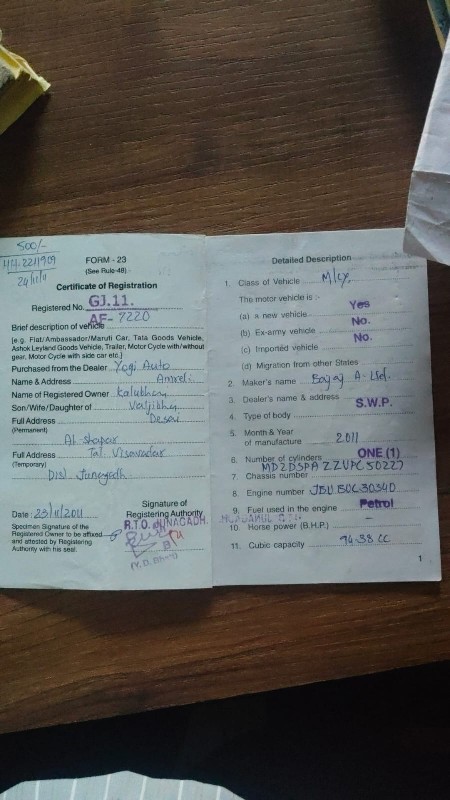 500/-
24/11/11
FORM - 23
(See Rule-48)
Certificate of Registration
Registered No. GJ.11.
AF- 7220
Brief description of vehicle
[e.g. Fiat/Ambassador/Maruti Car, Tata Goods Vehicle,
Ashok Leyland Goods Vehicle, Trailer, Motor Cycle with/without
gear, Motor Cycle with side car etc.]
Purchased from the Dealer Yogi Auto
Name & Address Amreli
Name of Registered Owner Kalubhai
Son/Wife/Daughter of Valjibhai
Full Address Desai
(Permanent)
At-
Full Address Tal. Visavadar
(Temporary)
Dist. Junagadh
Date : 23/11/2011
Signature of
Registering Authority
R.T.O. JUNAGADH.
Specimen Signature of the
Registered Owner to be affixed
and attested by Registering
Authority with his seal.
Detailed Description
1. Class of Vehicle M/cy.
The motor vehicle is :-
(a) a new vehicle Yes
(b) Ex-army vehicle No.
(c) Imported vehicle No.
(d) Migration from other States
2. Maker's name Bajaj A. Ltd.
3. Dealer's name & address S.W.P.
4. Type of body
5. Month & Year
of manufacture 2011
6. Number of cylinders ONE (1)
7. Chassis number
8. Engine number
9. Fuel used in the engine Petrol
10. Horse power (B.H.P.) -
11. Cubic capacity 94.38 CC
1